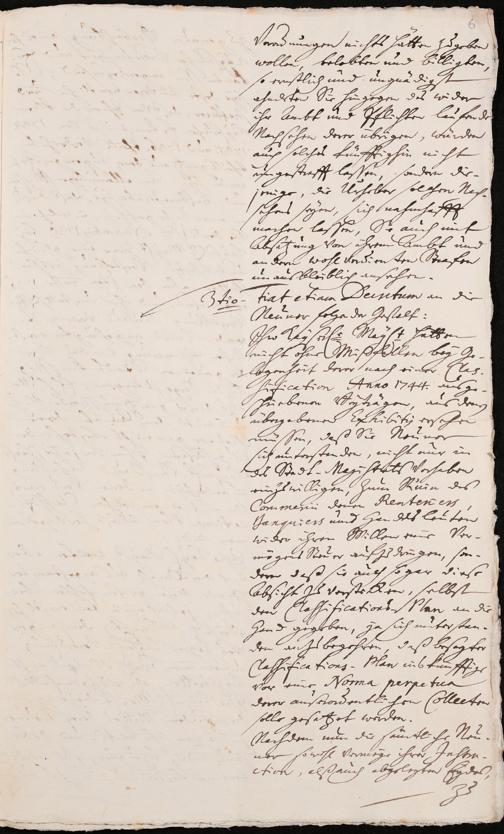 6
Verordnungen nichts hätten zugeben
wollen, belobten und billigten,
so ernstlich und ungnädigst
ahndeten Sie hingegen das wider
ihr Ambt und Pflichten laufende
Nachsehen derer übrigen, würden
auch solches künfftighin nicht
ungestrafft lassen, sondern die-
jenige, die Urheber solchen Nach-
sehens seyen, sich nahmhafft
machen lassen, Sie auch mit
Absetzung von ihrem Ambt und
andern wohl verdienten Straffen
unausbleiblich ansehen.
3tio. Fiat etiam Decretum an die
Neuner folgender Gestalt:
Ihro Kayserl. Mayst. hätten
nicht ohne Mißfallen bey Ge-
legenheit derer nach einer Clas-
sification Anno 1744. ausge-
schriebenen Beyträgen, aus denen
übergebenen Exhibitis ersehen
müssen, daß Sie Neuner
sich unterstanden, nicht nur in
des Stadt-Magistrats Vorhaben
einzuwilligen, zum Ruin des
Commercii denen Rentenirs,
Banquiers und Handelsleuten
wider ihren Willen eine Ver-
mögens Steuer aufzudringen, son-
dern daß sie auch sogar diese
Absicht zu verstellen, selbst
den Classifications Plan an die
Hand gegeben, ja sich unterstan-
den anzubegehren, daß besagter
Classifications-Plan ins künfftige
vor eine Norma perpetua
derer ausserordentlichen Collecten
solle gesetzet werden.
Nachdem nun die sämtliche Neu-
ner sowohl vermöge ihrer Instru-
ction, alß auch abgelegten Eydes,